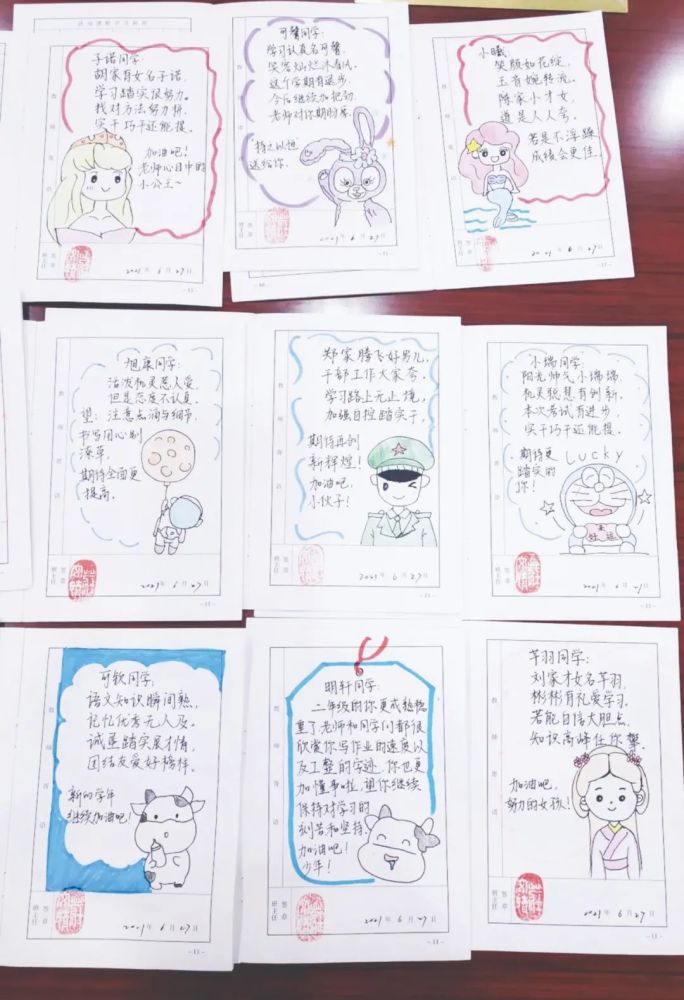 子诺同学:
胡家有女名子诺,
学习踏实很努力。
找对方法努力拼,
实干巧干还能提。
加油吧!
老师心目中的
小公主~
班主任
签章
2021年6月27日
-11-
可馨同学:
学习认真名可馨,
笑容灿烂沐春风。
这个学期有进步,
今后继续加把劲。
老师对你期盼
持之以恒
送给你.
2021年6月27日
-11-
小曦:
笑颜如花绽,
玉音婉转流。
陈家小才女,
道是人人夸。
若是不浮躁
成绩会更佳.
2021年6月27日
-11-
旭康同学:
活泼机灵惹人爱,
但是态度不认真.
望:注意点滴与细节.
书写用心别
潦草.
期待全面更
提高。
教师寄语
班主任
签章
2021年6月27日
-11-
郑家腾飞好男儿,
干部工作大家夸.
学习路上无止境,
加强自控踏实干,
期待再创
新辉煌!
加油吧,
小伙子!
教师寄语
班主任
签章
2021年6月27日
-11-
小瑞同学:
阳光帅气小瑞瑞.
机灵聪慧有创新.
本次考试有进步
实干巧干还能提.
期待更
踏实的
你!
LUCKY
好运
教师寄语
班主任
签章
-11-
可钦同学:
语文知识瞬间熟,
记忆优秀无人及。
诚星踏实展才情,
团结友爱好榜样。
新的学年
继续加油吧!
班主任
签章
2021年6月27日
-11-
明轩同学:
二年级的你更成熟稳
重了.老师和同学们都很
欣赏你写作业的速度以
及工整的字迹.你也更
加懂事啦.望你继续
保持对学习的
刻苦和坚持.
加油吧!
少年!
班主任
签章
2021年6月27日
-11-
芊羽同学:
刘家才女名芊羽,
彬彬有礼爱学习。
若能自信大胆点,
知识高峰任你攀.
加油吧,
努力的女孩!
教师寄语
班主任
签章
2021年6月27日
-11-